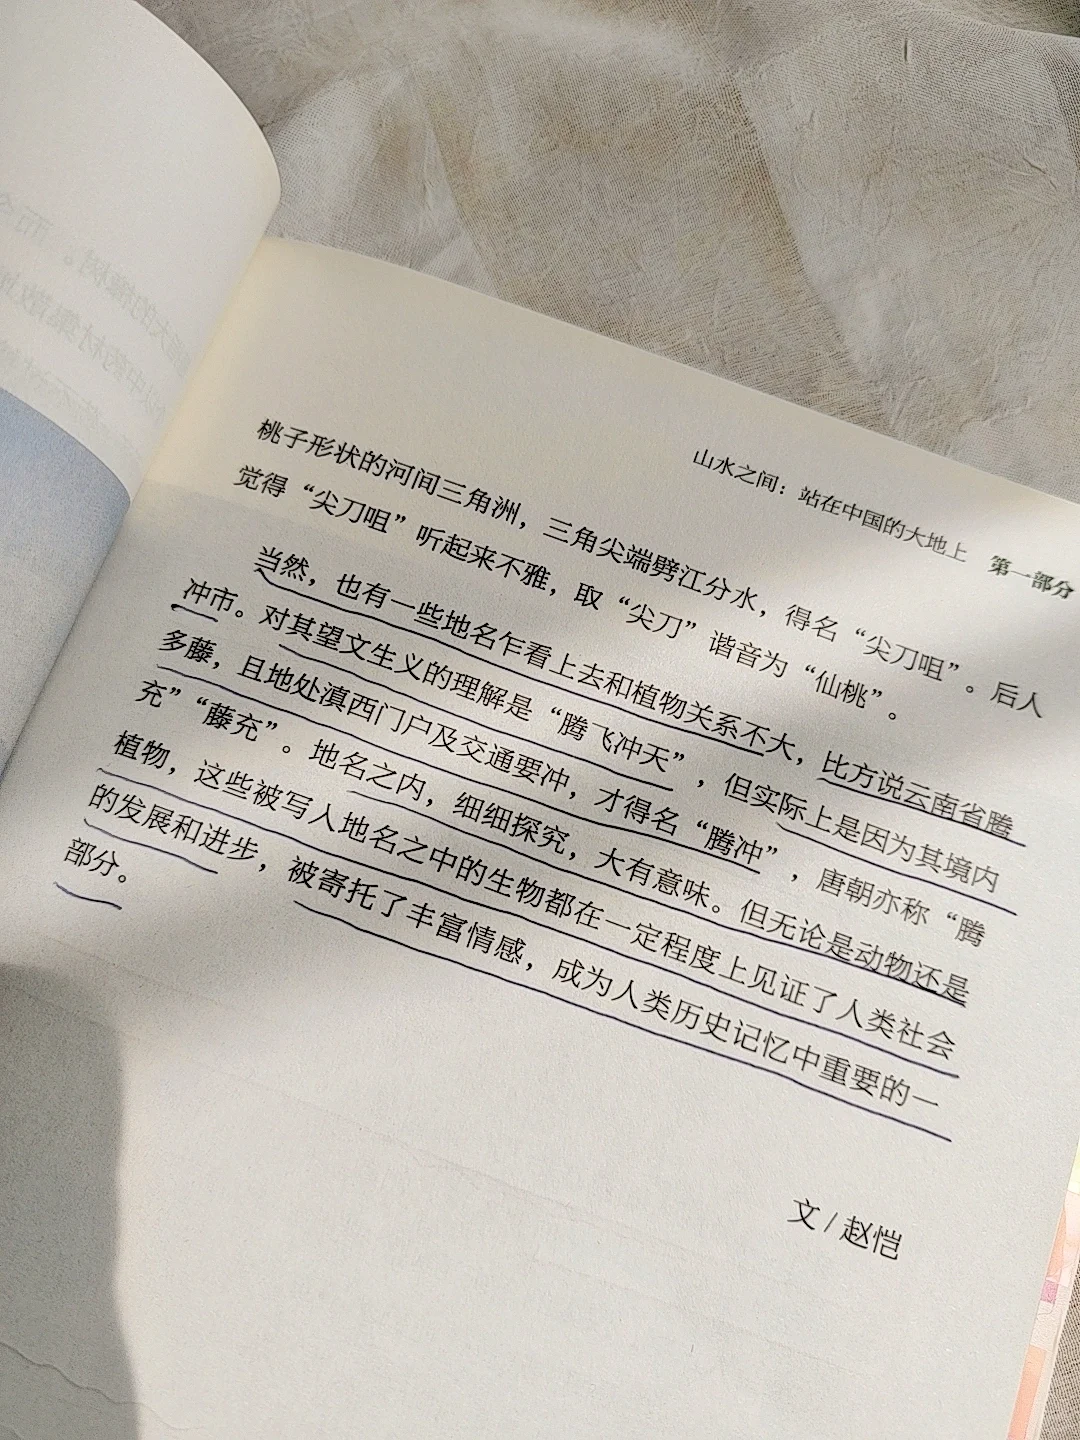 山水之间：站在中国的大地上 第一部分
桃子形状的河间三角洲，三角尖端劈江分水，得名“尖刀咀”。后人
觉得“尖刀咀”听起来不雅，取“尖刀”谐音为“仙桃”。
当然，也有一些地名乍看上去和植物关系不大，比方说云南省腾
冲市。对其望文生义的理解是“腾飞冲天”，但实际上是因为其境内
多藤，且地处滇西门户及交通要冲，才得名“腾冲”，唐朝亦称“腾
充”“藤充”。地名之内，细细探究，大有意味。但无论是动物还是
植物，这些被写人地名之中的生物都在一定程度上见证了人类社会
的发展和进步，被寄托了丰富情感，成为人类历史记忆中重要的一
部分。
文/赵恺